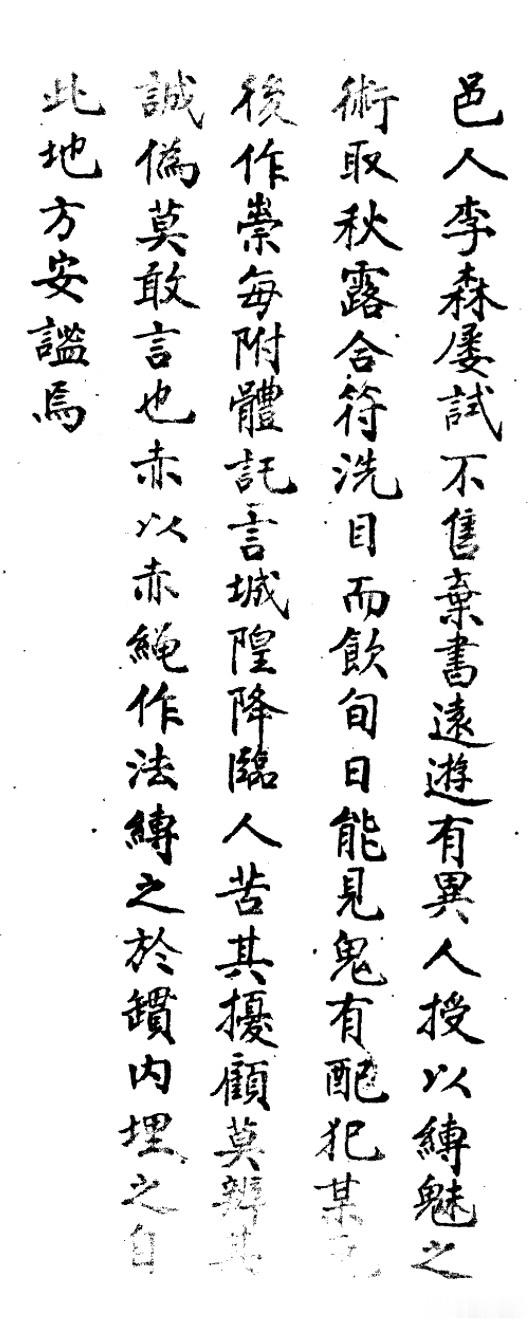 邑人李森屡試不售棄書遠遊有異人授以縛魅之
術取秋露合符洗目而飲旬日能見鬼有配犯某死
後作祟每附體託言城隍降臨人苦其擾顧莫辨其
誠偽莫敢言也赤以赤繩作法縛之於罐内埋之自
此地方安謐焉